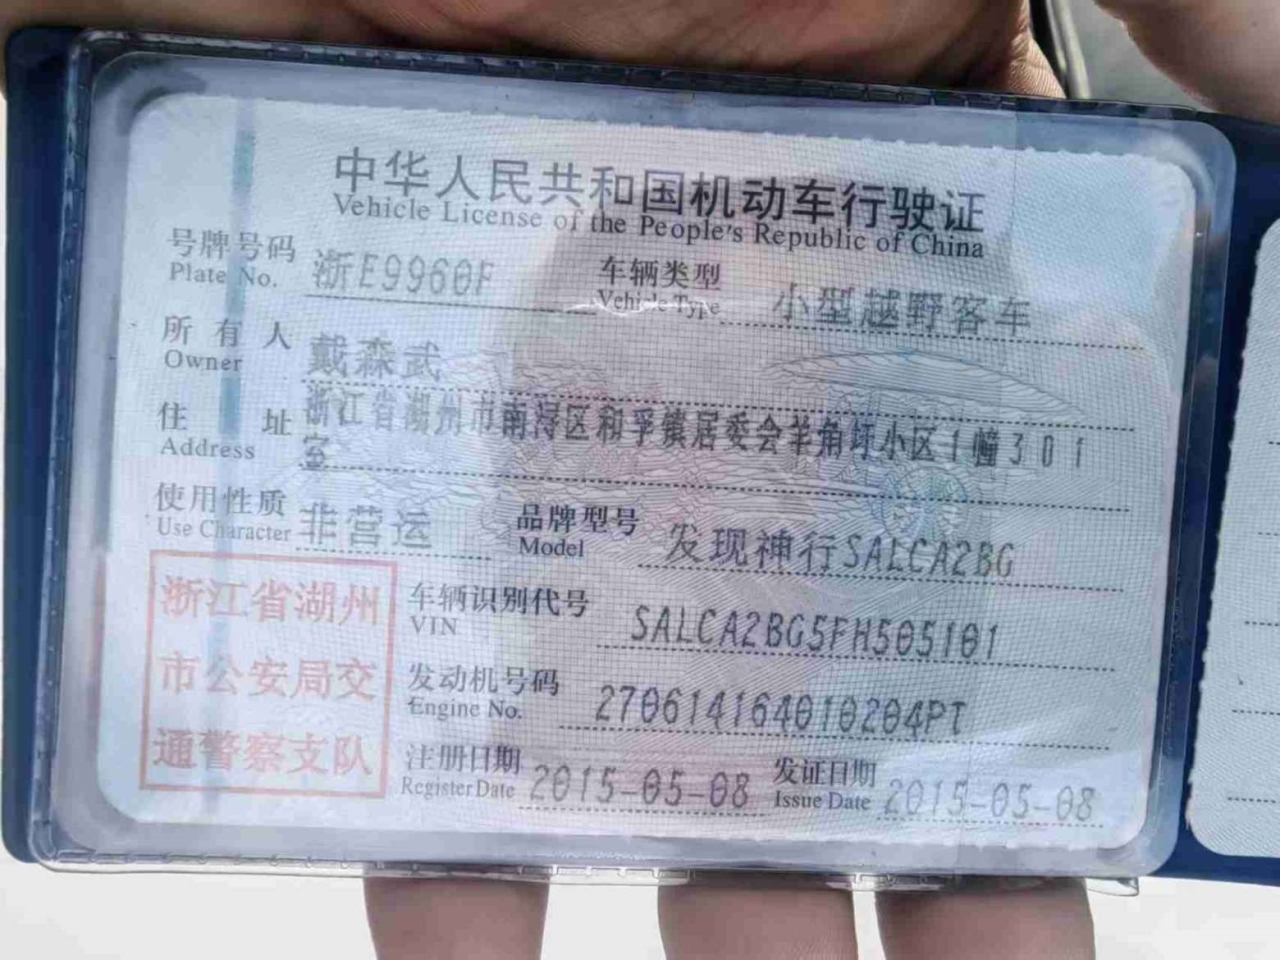 中华人民共和国机动车行驶证
Vehicle License of the People's Republic of China
号牌号码 浙E9960F 车辆类型 小型越野客车
Plate No. Vehicle Type
所有人 戴森武
Owner
住址 浙江省湖州市南浔区和孚镇居委会羊角圩小区1幢301
Address 室
使用性质 非营运 品牌型号 发现神行SALCA2BG
Use Character Model
浙江省湖州
市公安局交
通警察支队
车辆识别代号 SALCA2BG5FH505101
VIN
发动机号码 270614164010204PT
Engine No.
注册日期 2015-05-08 发证日期 2015-05-08
Register Date Issue Date